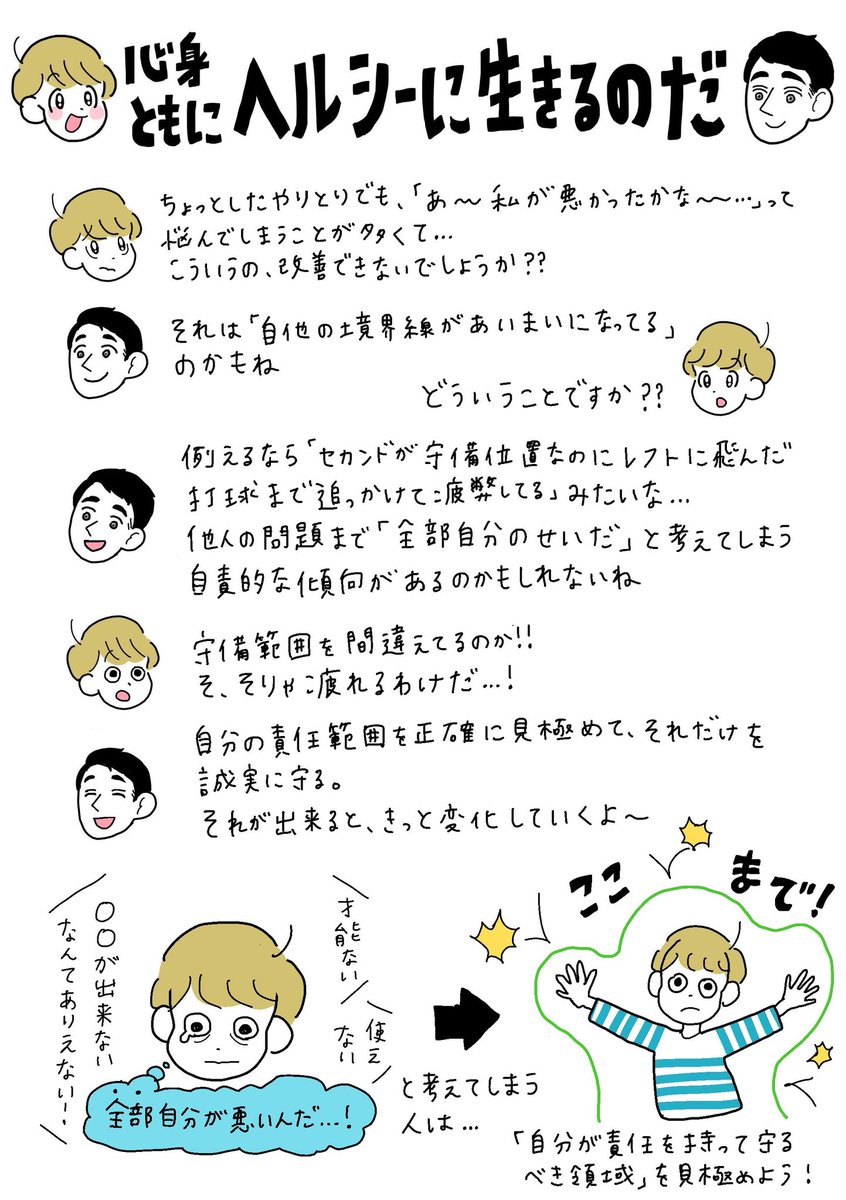 心身
ともに
ヘルシーに生きるのだ
ちょっとしたやりとりでも、「あ〜私が悪かったかな〜…」って
悩んでしまうことが多くて…
こういうの、改善できないでしょうか??
それは「自他の境界線があいまいになってる」
のかもね
どういうことですか??
例えるなら「セカンドが守備位置なのにレフトに飛んだ
打球まで追っかけて疲弊してる」みたいな…
他人の問題まで「全部自分のせいだ」と考えてしまう
自責的な傾向があるのかもしれないね
守備範囲を間違えてるのか!!
そ、そりゃ疲れるわけだ…!
自分の責任範囲を正確に見極めて、それだけを
誠実に守る。
それが出来ると、きっと変化していくよ〜
〇〇が出来ない
なんてありえない!
才能ない
使え
ない
全部自分が悪いんだ…!
と考えてしまう
人は…
ここまで!
「自分が責任を持って守る
べき領域」を見極めよう!